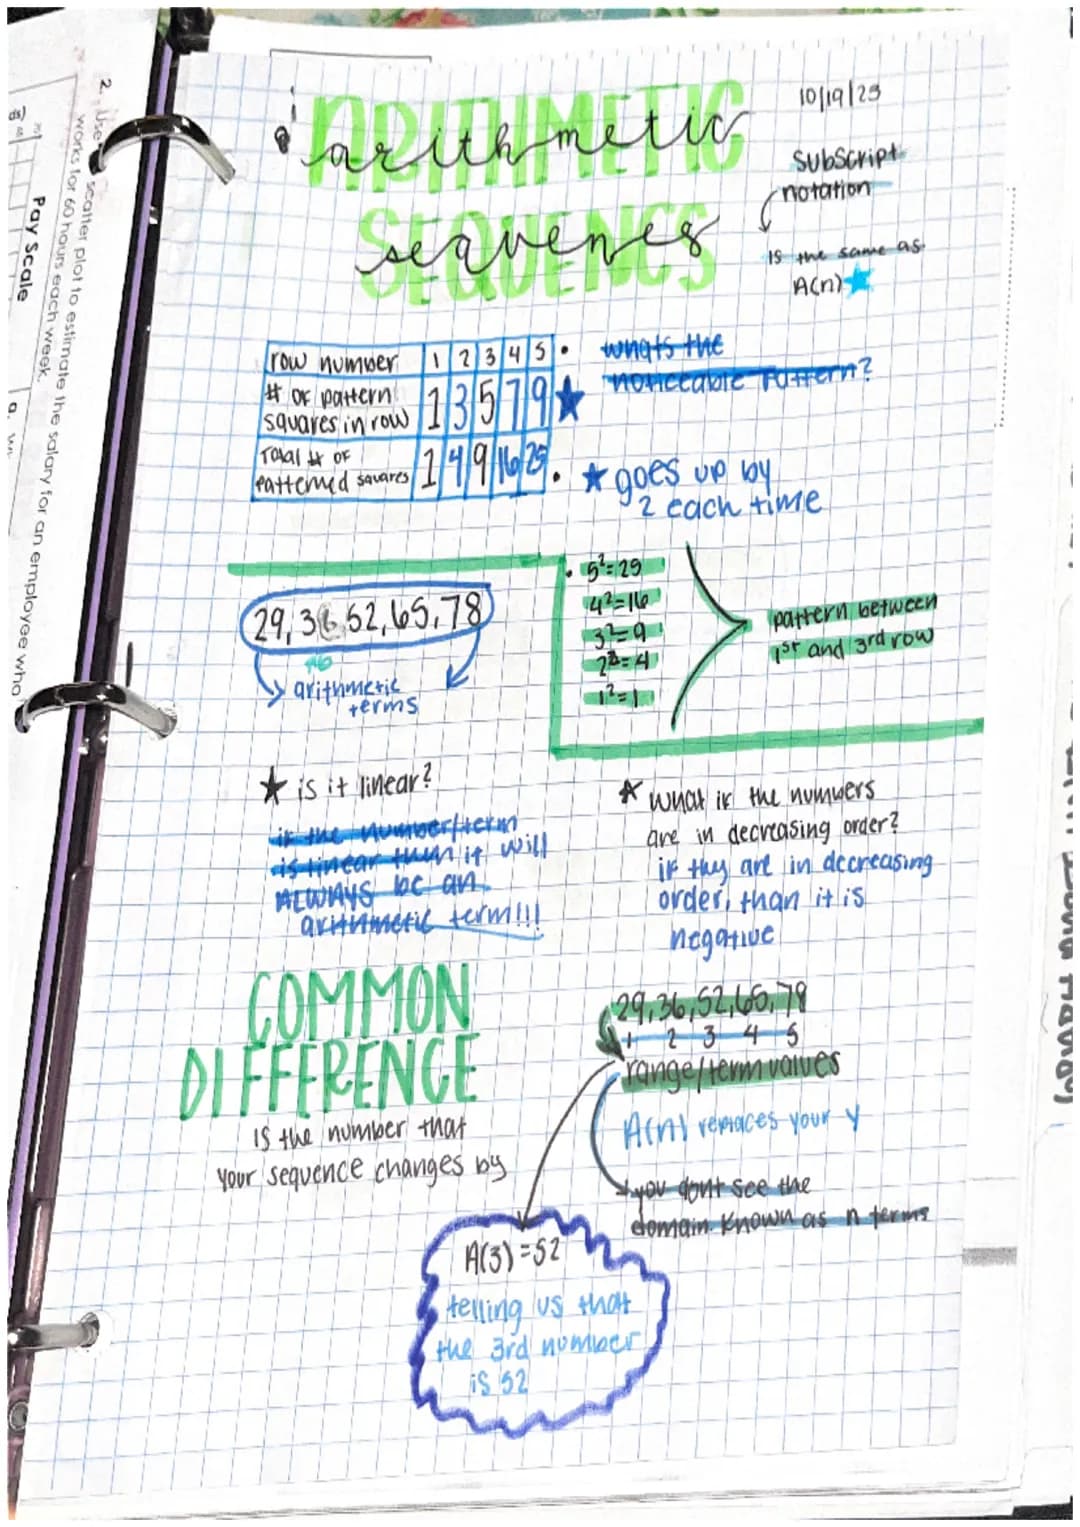 10/19/23
ARITHMETIC
arithmetic
SEQUENCS
sequences
subscript
notation
is the same as
A(n)
row number 1 2 3 4 5
# of pattern
squares in row 1 3 5 7 9
Total # of
patterned squares 1 4 9 16 25
whats the
noticeable Pattern?
goes up by
2 each time
5²=25
4²=16
3²=9
2²=4
1²=1
pattern between
1st and 3rd row
29, 36, 52, 65, 78
arithmetic
terms
is it linear?
if the number/term
is linear then it will
ALWAYS be an
arithmetic term!!!
What if the numbers
are in decreasing order?
if they are in decreasing
order, than it is
negative
COMMON
DIFFERENCE
is the number that
your sequence changes by
29, 36, 52, 65, 78
1 2 3 4 5
range/term values
A(n) replaces your y
you dont see the
domain known as n terms
A(3)=52
telling us that
the 3rd number
is 52
2. Use scatter plot to estimate the salary for an employee who
works for 60 hours each week.
Pay Scale